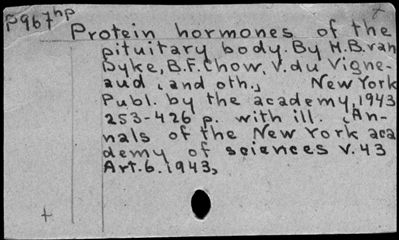 P967hp
Protein hormones of the
pituitary body. By H.B. van
Dyke, B.F. Chow, V. du Vigne-
aud, and oth., New York
Publ. by the academy, 1943
253-426 p. with ill. (An-
nals of the New York aca
demy of sciences V.43
Art.6.1943,